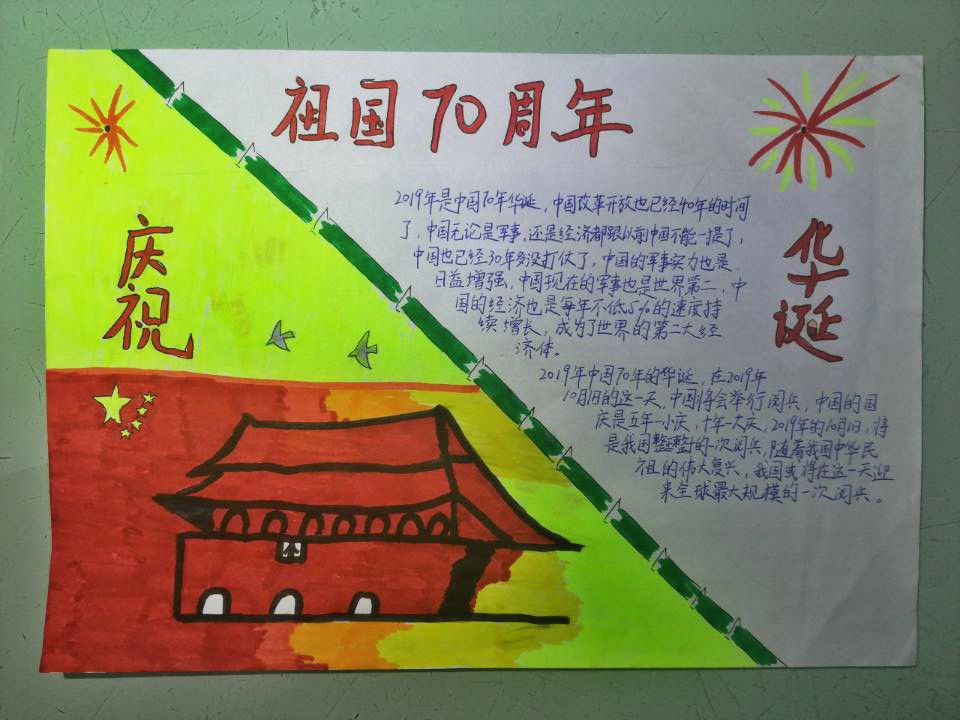 庆祝
祖国70周年
华诞
2019年是中国70年华诞，中国改革开放也已经40年的时间
了，中国无论是军事，还是经济都跟以前中国不能一提了，
中国也已经30年多没打仗了，中国的军事实力也是
日益增强，中国现在的军事也是世界第二，中
国的经济也是每年不低5%的速度持
续增长，成为了世界的第二大经
济体。
2019年中国70年的华诞，在2019年
10月1日的这一天，中国将会举行阅兵，中国的国
庆是五年一小庆，十年一大庆，2019年的10月1日，将
是我国整整的一次阅兵，随着我国中华民
祖的伟大复兴，我国或将在这一天迎
来全球最大规模的一次阅兵。